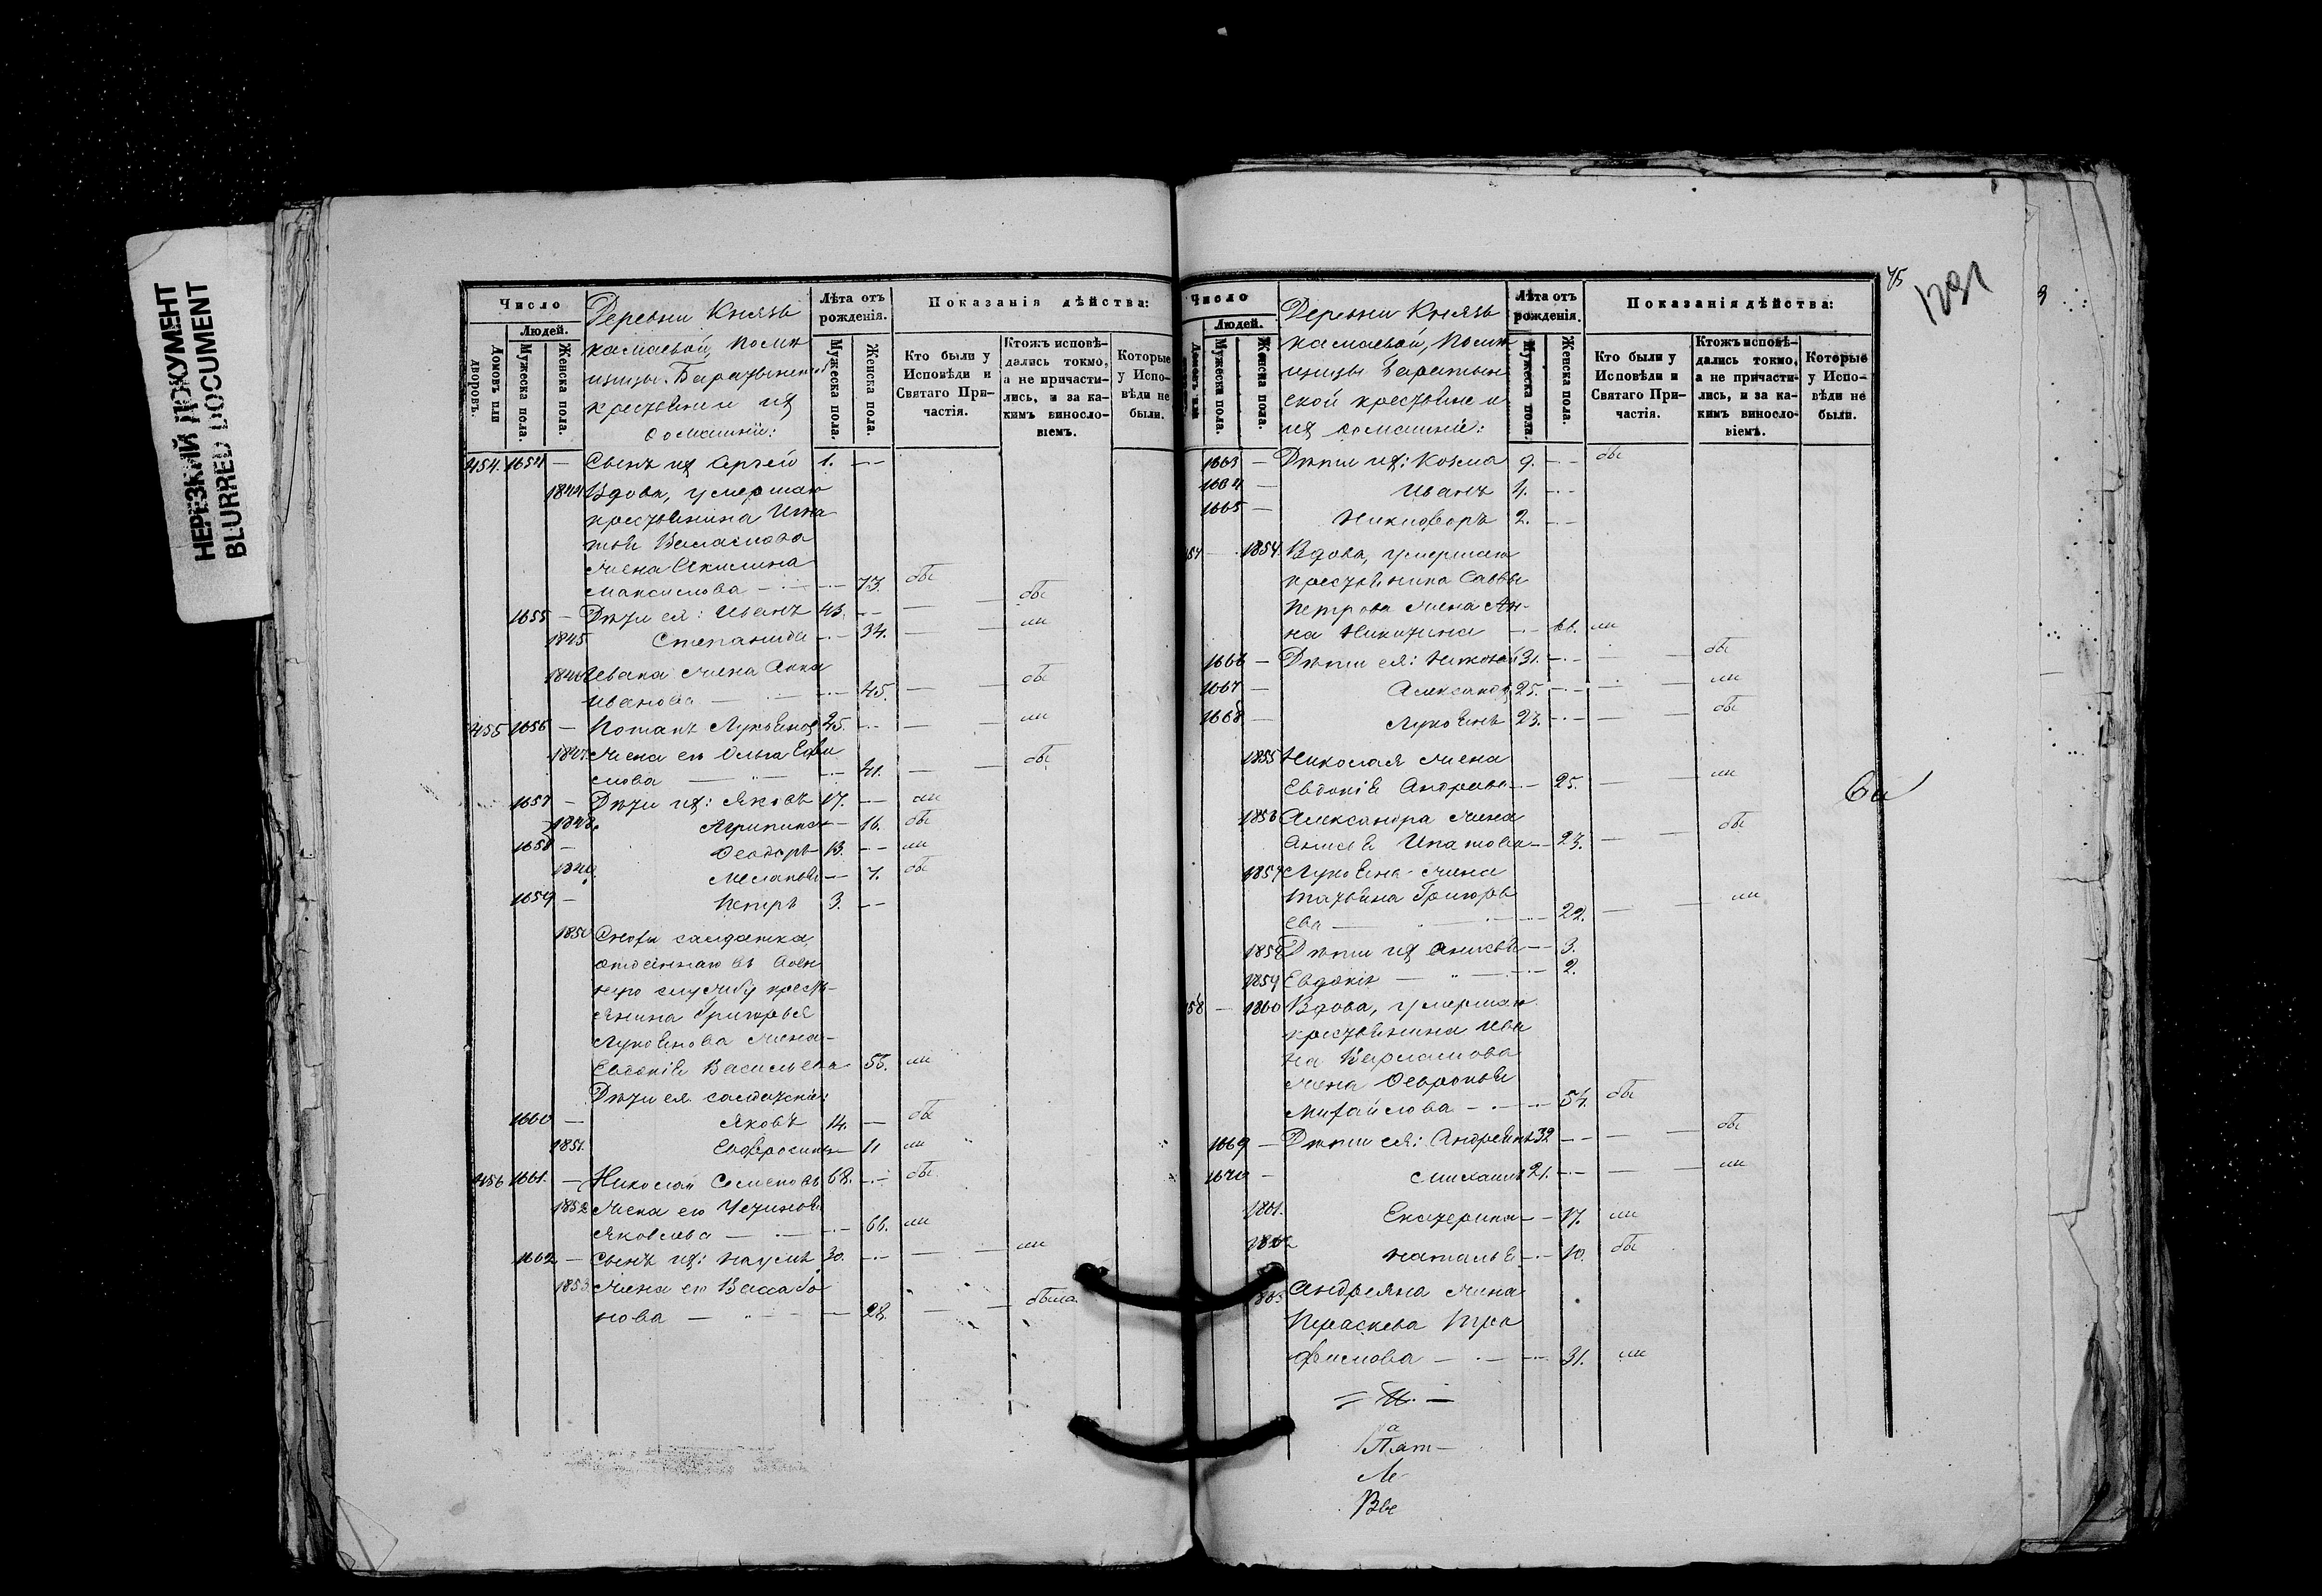 НЕРЕЗКИЙ ДОКУМЕНТ
BLURRED DOCUMENT
Число
Людей.
Домовъ или дворовъ.
Мужеска пола.
Женска пола.
Деревни Князь
камаевой, поме
щицы Баратынской
крестьяне и ихъ
домашнии:
Лѣта отъ рожденія.
Мужеска пола.
Женска пола.
Показанія дѣйства:
Кто были у Исповѣди и Святаго Причастія.
Ктожъ исповѣдались токмо, а не причастились, и за какимъ винословіемъ.
Которые у Исповѣди не были.
454. 1654 — Сынъ ихъ 1. —
1844 Вдова, умершаго
крестьянина Игна
тья
жена Акилина
Максимова — 73. бы
1655 — Дѣти ея: Иванъ 43. — — — бы
1845 Степанида — 34. — — ли
1846 Ивана жена Анна
Иванова — 45. — — бы
455 1656 — Потапъ Лукьяновъ 45. — — — ли
1847 Жена его Ольга Ефи
мова — 41. — — бы
1657 — Дѣти ихъ: Яковъ 17. — ли
1848. Агрипина — 16. бы
1658 — Ѳеодоръ 13. — ли
1849. Меланья — 7. бы
1659 — Петръ 3. —
1850 Снова салдатка
отданнаго въ воен
ную службу кресть-
янина Григорья
Лукьянова жена
Евдокія Васильева 55. ли
Дѣти ея салдатскія:
1660 — Яковъ 14. — бы
1851. Евфросинья — 11 ли
456 1661. — Николай Семеновъ 68. — бы
1852 Жена его Устинья
Яковлева — 66. ли
1662 — Сынъ ихъ: Наумъ 30. — — — ли
1853. Жена его Васса
нова — 28. — — была.
75
Число
Людей.
Мужеска пола.
Женска пола.
Деревни Князь
камаевой, поме
щицы Баратын
ской крестьяне и
ихъ домашніе:
Лѣта отъ рожденія.
Мужеска пола.
Женска пола.
Показанія дѣйства:
Кто были у Исповѣди и Святаго Причастія.
Ктожъ исповѣдались токмо, а не причастились, и за какимъ винословіемъ.
Которые у Исповѣди не были.
1663 — Дѣти ихъ: Козма 9. — бы
1664 — Иванъ 4. —
1665 — Никифоръ 2. —
1854. Вдова, умершаго
крестьянина Саввы
Петрова жена Ан-
на Никитина — 66. ли
1666 — Дѣти ея: Николай 31. — — — бы
1667 — Александръ 25. — — — ли
1668 — Лукьянъ 23. — — — бы
1855 Николая жена
Евдокія Андреева — 25. — — ли
1856 Александра жена
Анисья Ипатова — 23. — — бы
1857 Лукьяна жена
Татьяна Григорь
ева — 22. — — ли
1858 Дѣти ихъ — 3.
1859 Евдокія — 2.
58 — 1860 Вдова, умершаго
крестьянина Ива
на Варламова
жена
Михайлова — 54. бы
1669 — Дѣти ея: Андреянъ 32 — — — бы
1670 — Михаилъ 21. — — — ли
1861. Екатерина — 17. ли
1862 Наталья — 10. бы
Андреяна жена
Параскева Тро
фимова — 31. ли